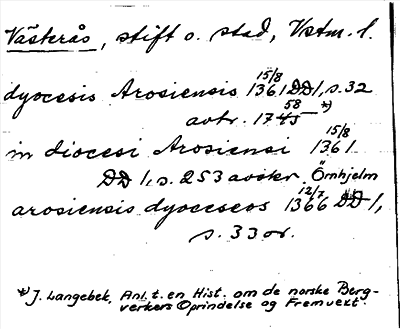 Västerås, stift o. stad, Vstm. l.
dyocesis Arosiensis 15/8 1361 DD 1, s. 32
avtr. 1745 58 *)
in diocesi Arosiensi 15/8 1361
DD 1, s. 253 avskr. Örnhjelm
arosiensis dyoceseos 12/7 1366 DD 1,
s. 33 or.
*) J. Langebek, Anl. t. en Hist. om de norske Berg-
verkers Oprindelse og Fremvext.